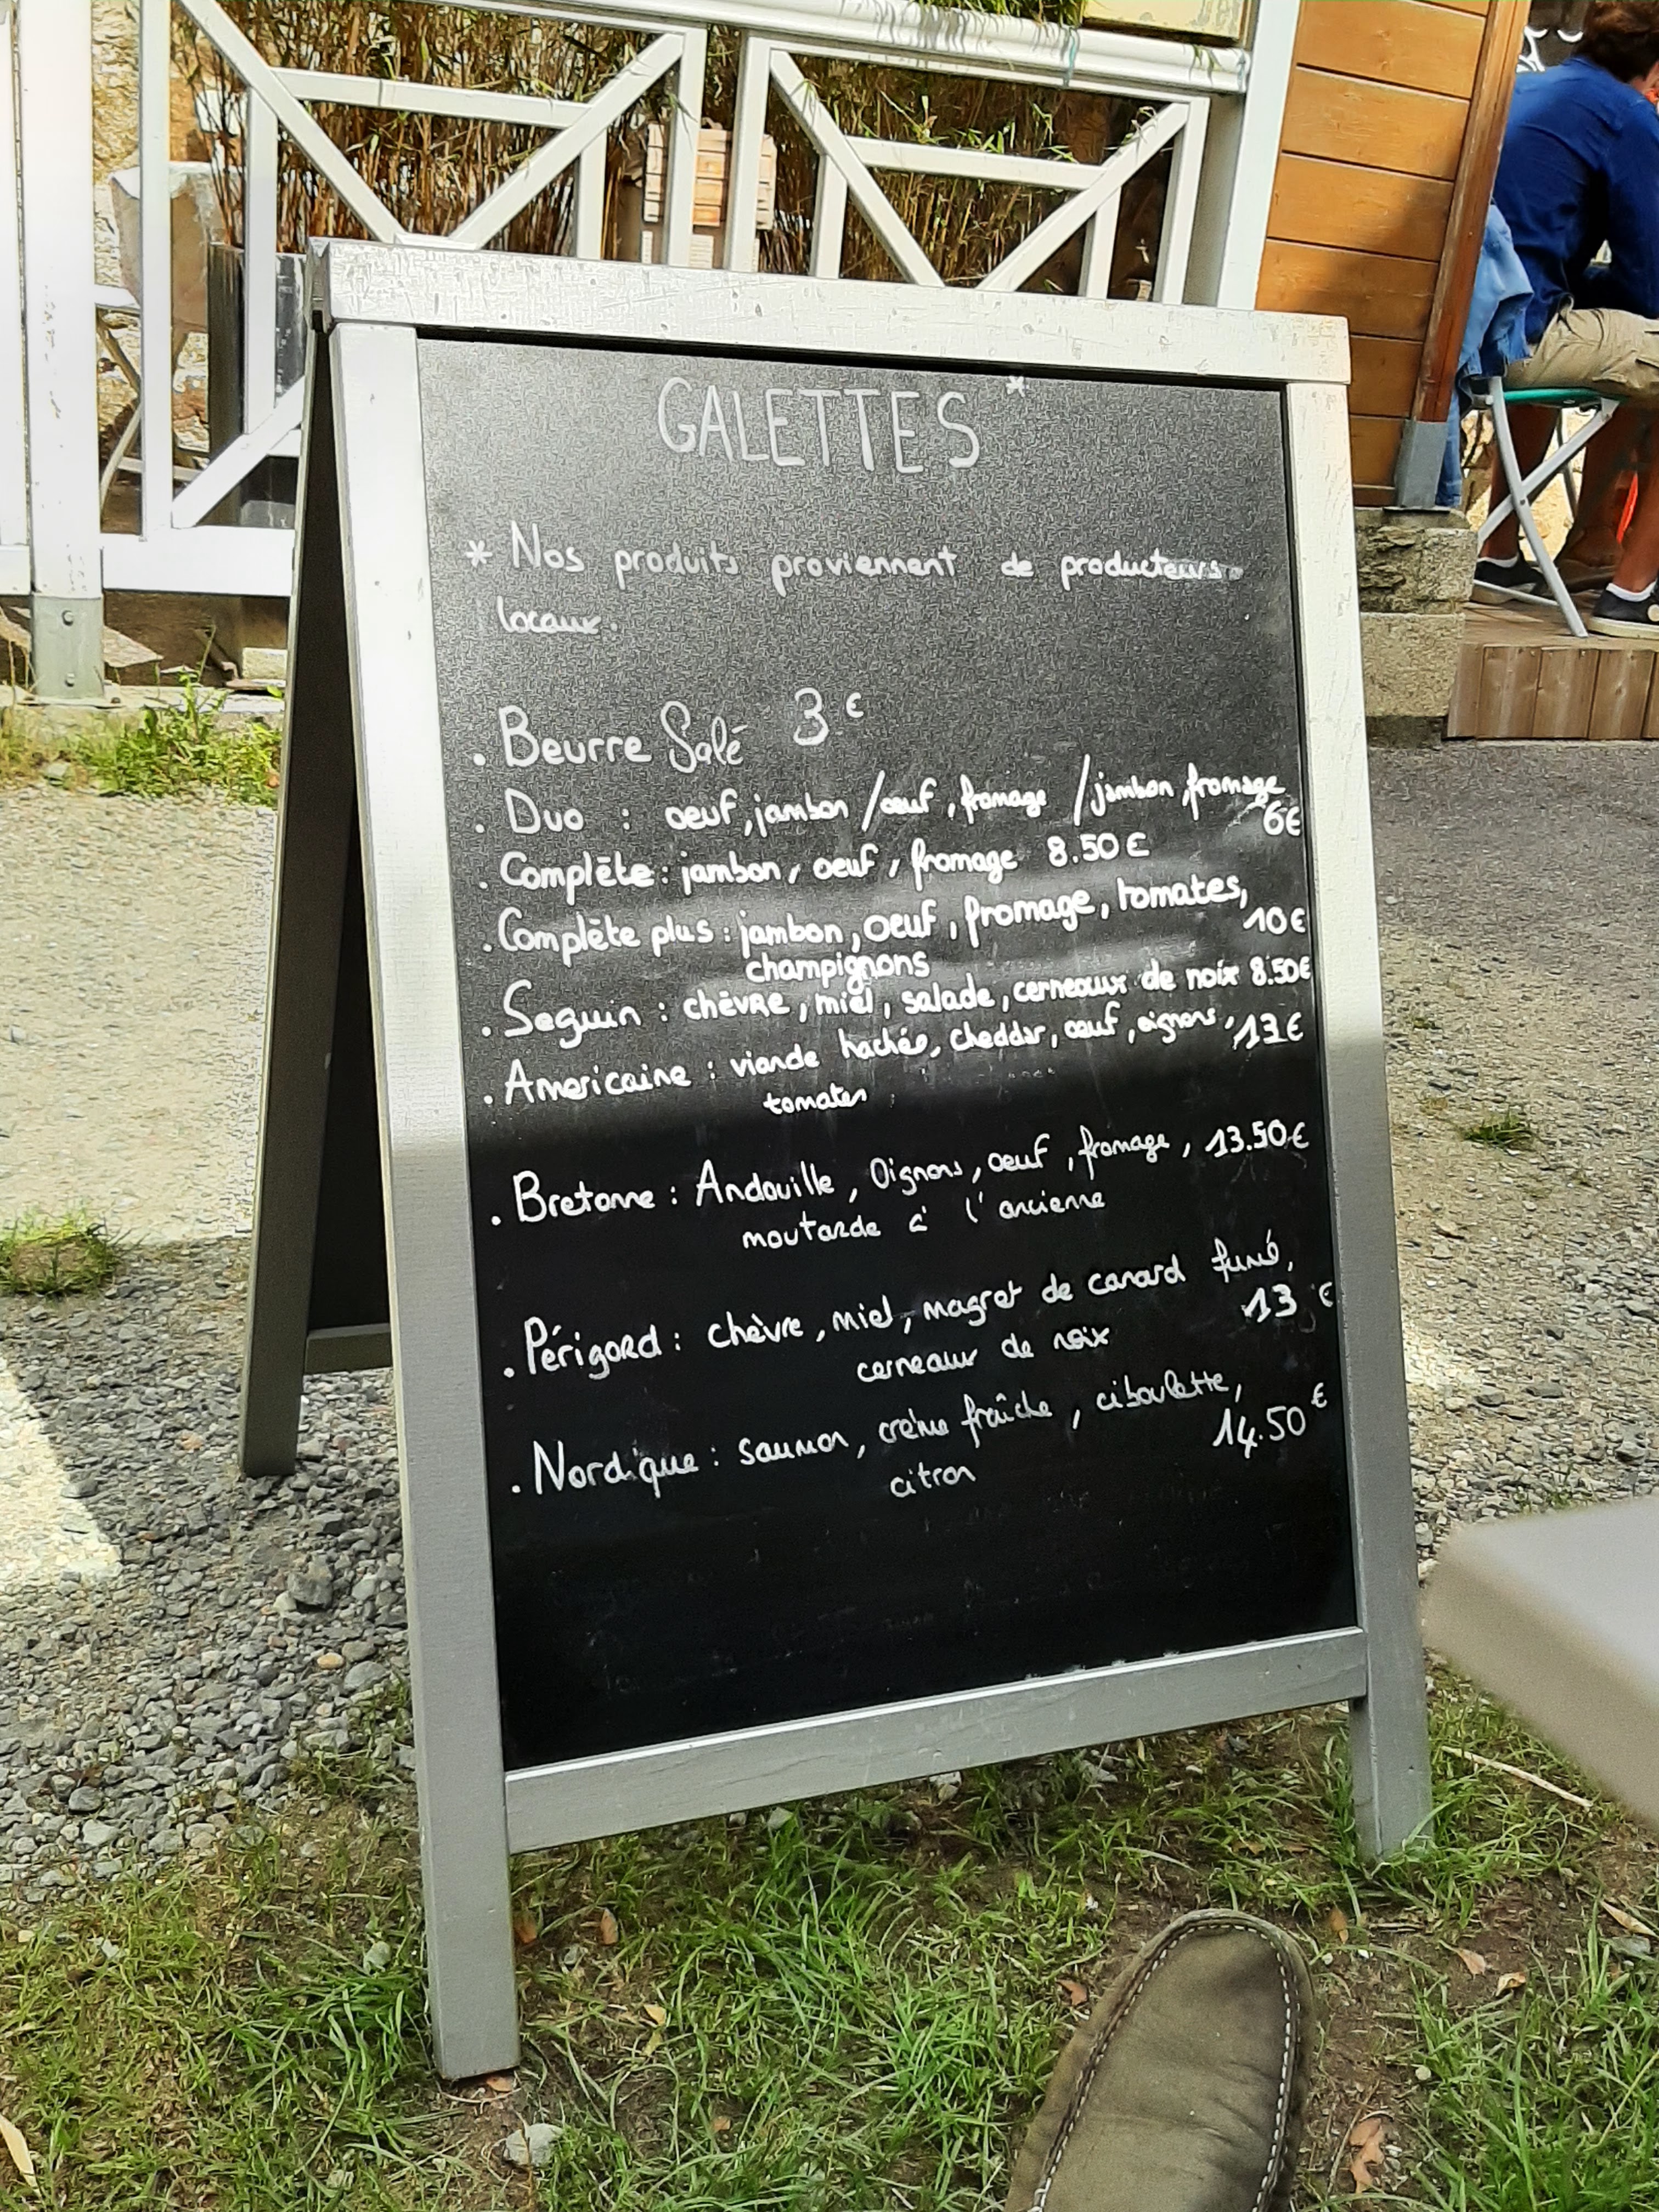 GALETTES *
* Nos produits proviennent de producteurs
locaux.
. Beurre Salé 3 €
. Duo : oeuf, jambon / oeuf, fromage / jambon, fromage
6€
. Complète : jambon, oeuf, fromage 8.50 €
. Complète plus : jambon, oeuf, fromage, tomates,
10€
champignons
. Seguin : chèvre, miel, salade, cerneaux de noix 8.50€
. Americaine : viande hachée, cheddar, oeuf, oignons, 13€
tomates
. Bretonne : Andouille, Oignons, oeuf, fromage, 13.50€
moutarde à l'ancienne
. Périgord : chèvre, miel, magret de canard fumé,
13 €
cerneaux de noix
. Nordique : saumon, crème fraîche, ciboulette,
14.50 €
citron